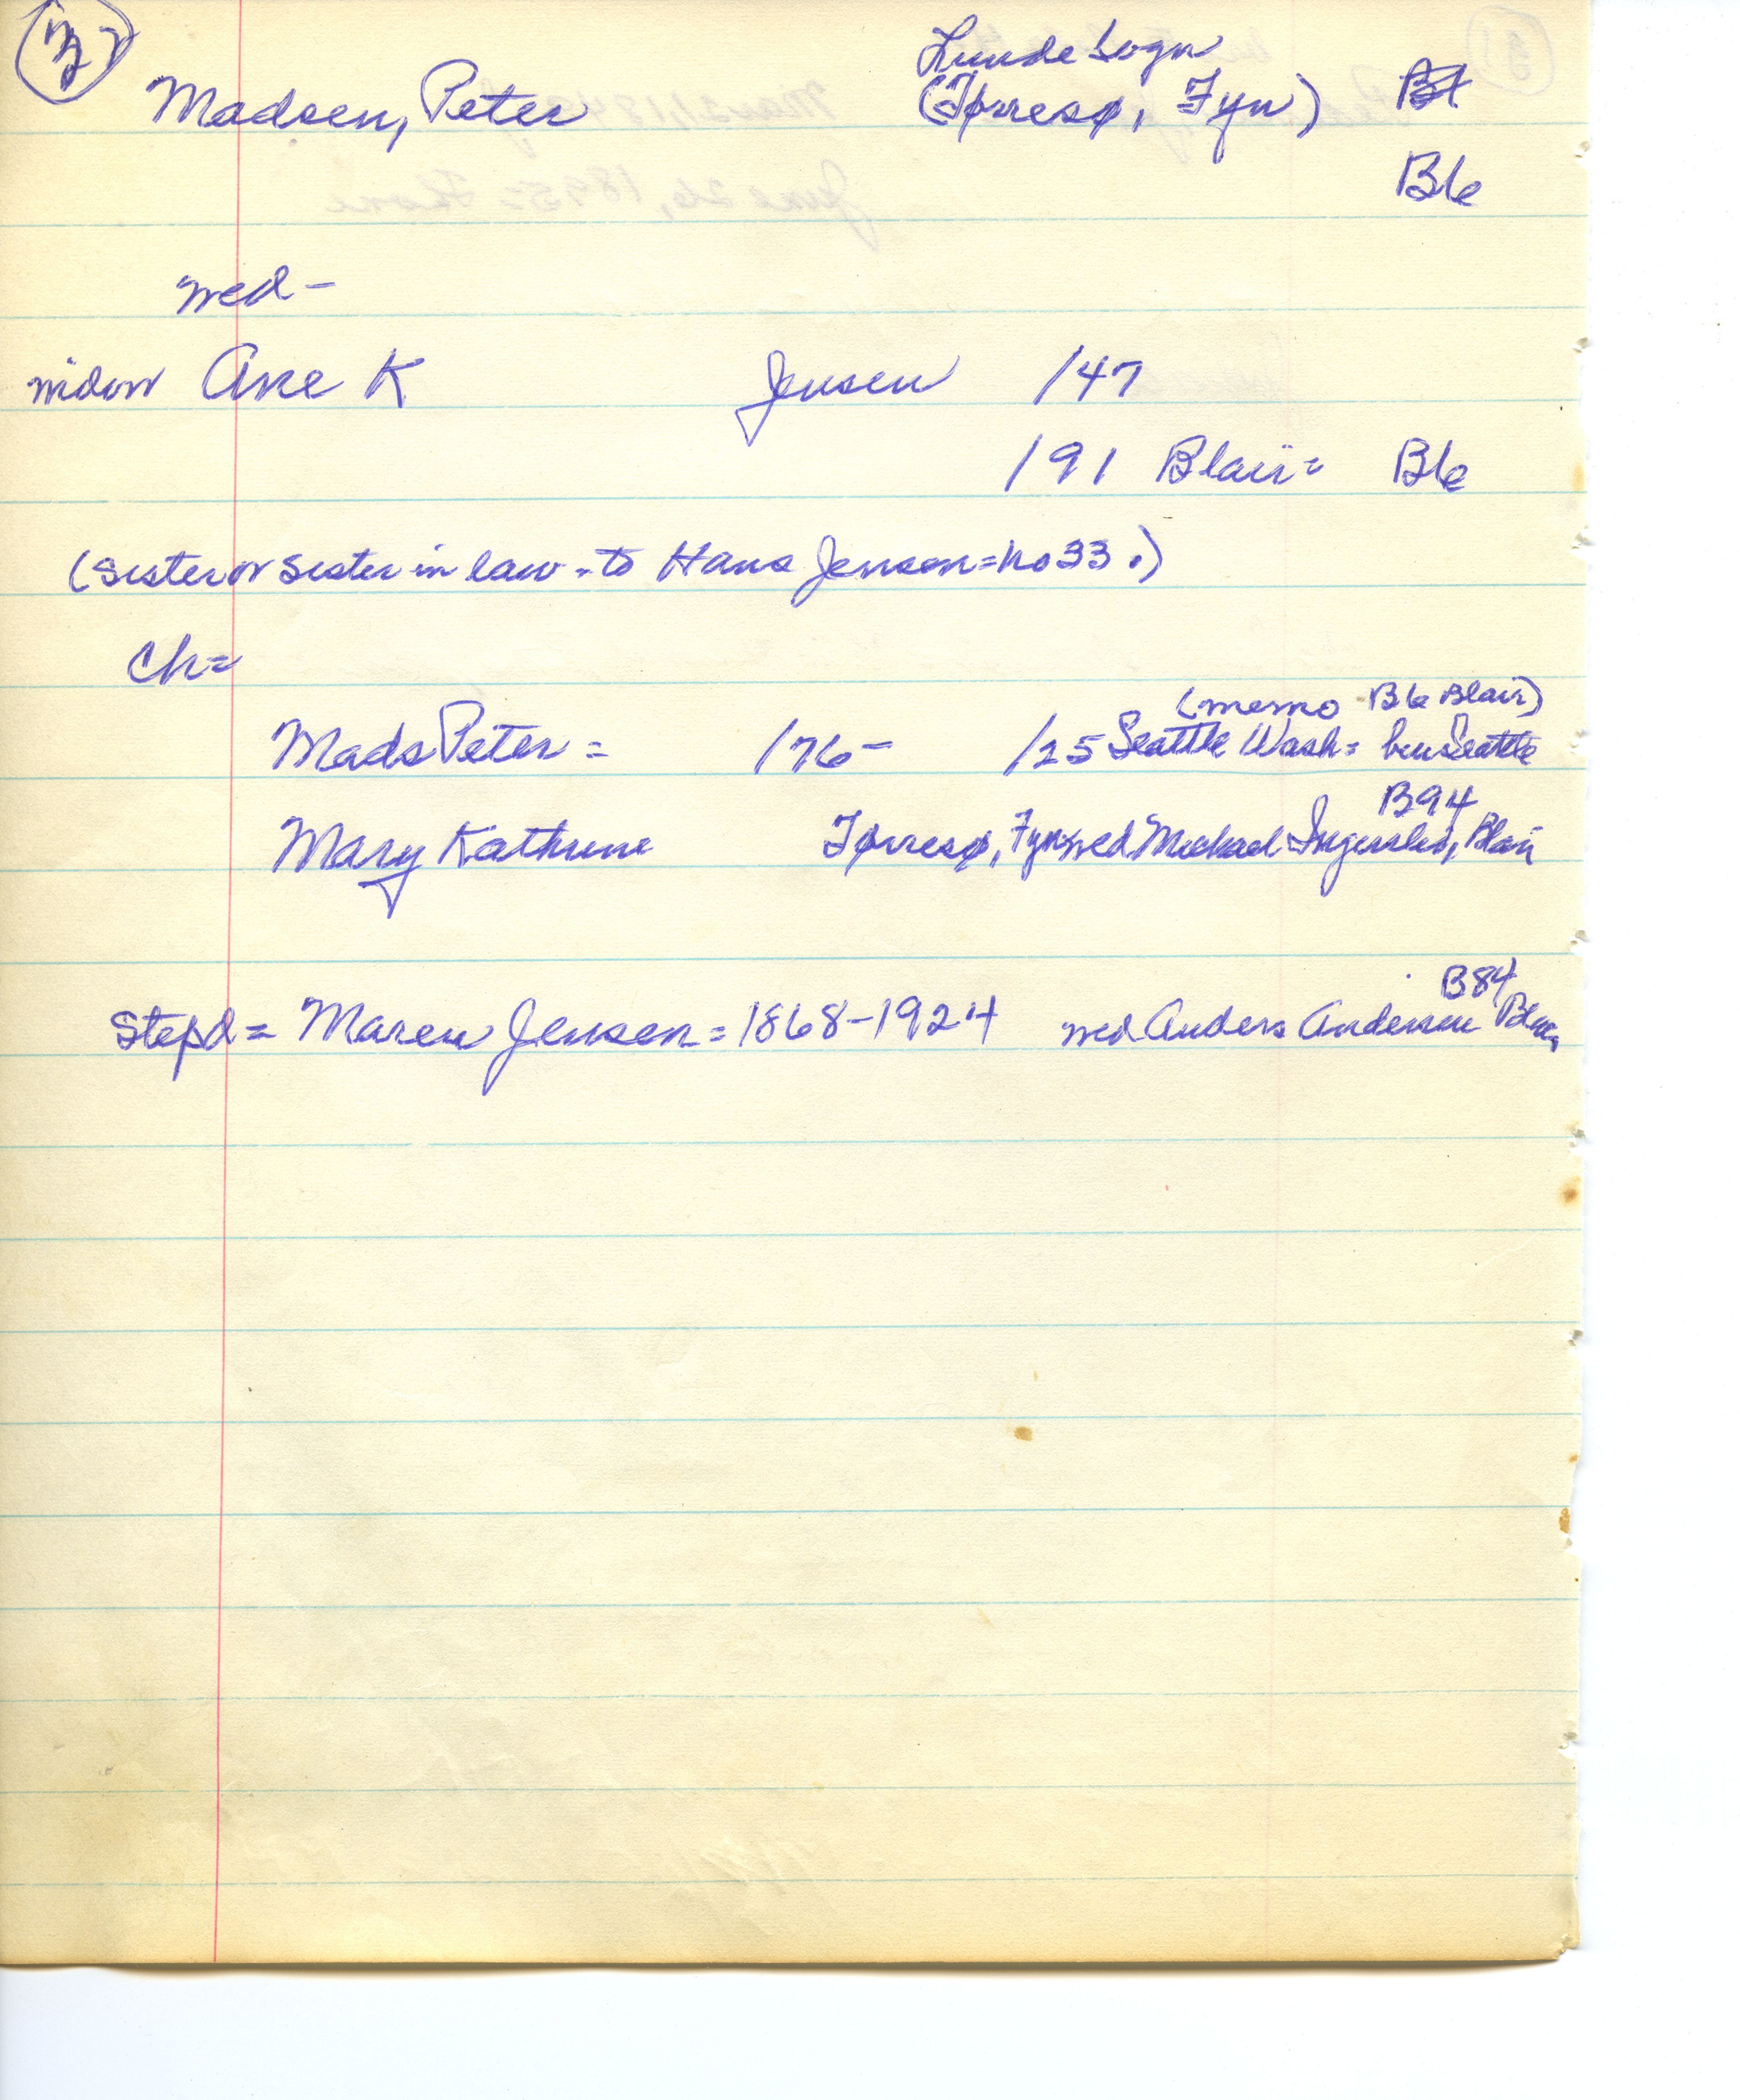 Lunde Sogn
Madsen, Peter (Tørresø, Fyn) Bt
B6
wed-
widow Ane K Jensen /47
/91 Blair= B6
(sister or sister in law - to Hans Jensen=no 33.)
Ch=
(memo B6 Blair)
Mads Peter = /76- /25 Seattle Wash= bu Seattle
B94
Mary Kathrine Tørresø, Fyn=wed Michael Blair
B84
Stepd= Maren Jensen=1868-1924 wed Anders Andersen Blair